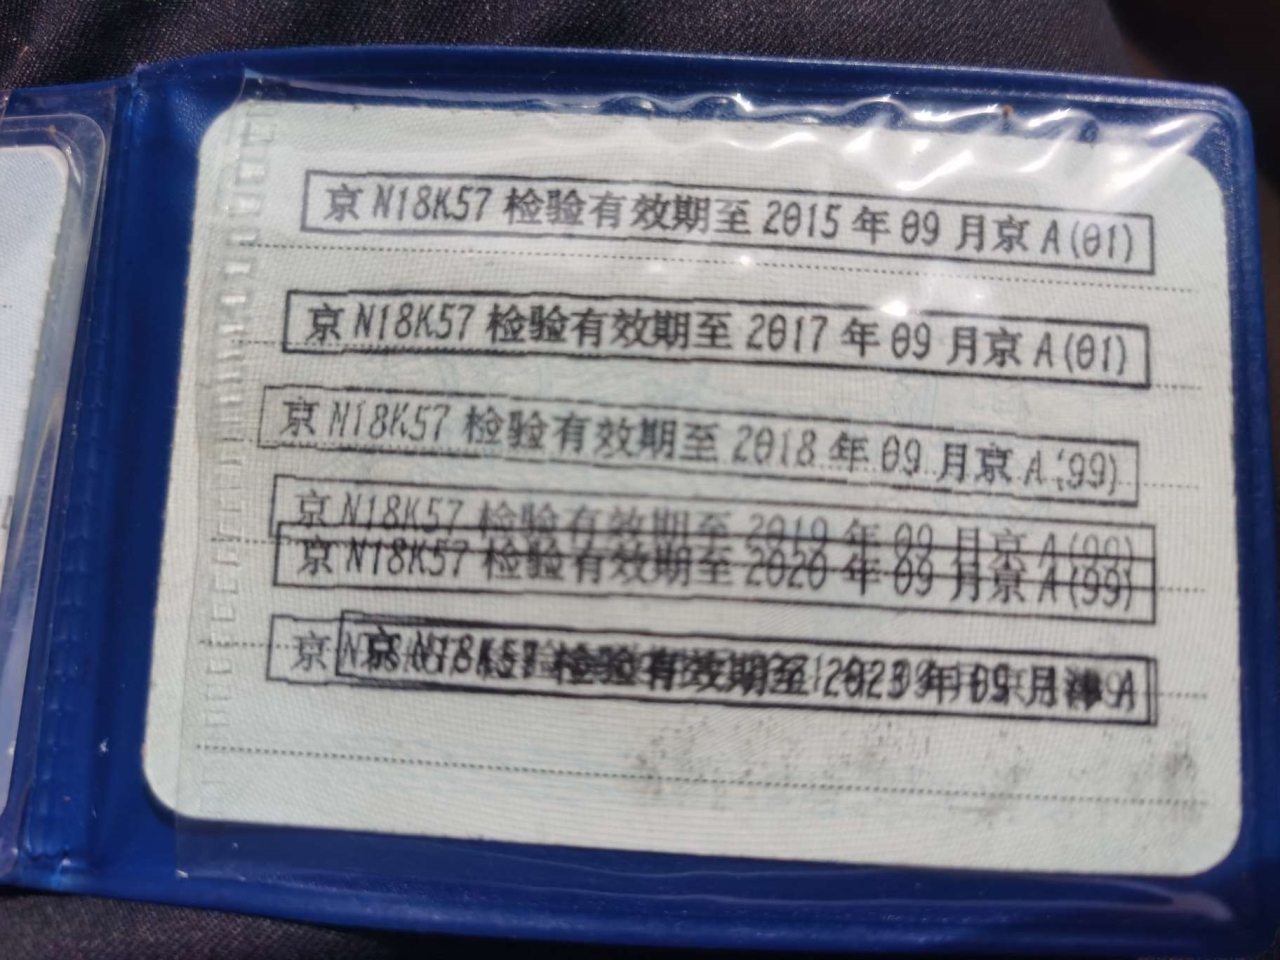 京N18K57 检验有效期至 2015 年 09 月京 A(01)
京N18K57 检验有效期至 2017 年 09 月京 A(01)
京N18K57 检验有效期至 2018 年 09 月京 A(99)
京N18K57 检验有效期至 2019 年 09 月京 A(99)
京N18K57 检验有效期至 2020 年 09 月京 A(99)
京N18K57 检验有效期至 2023 年 09 月津 A